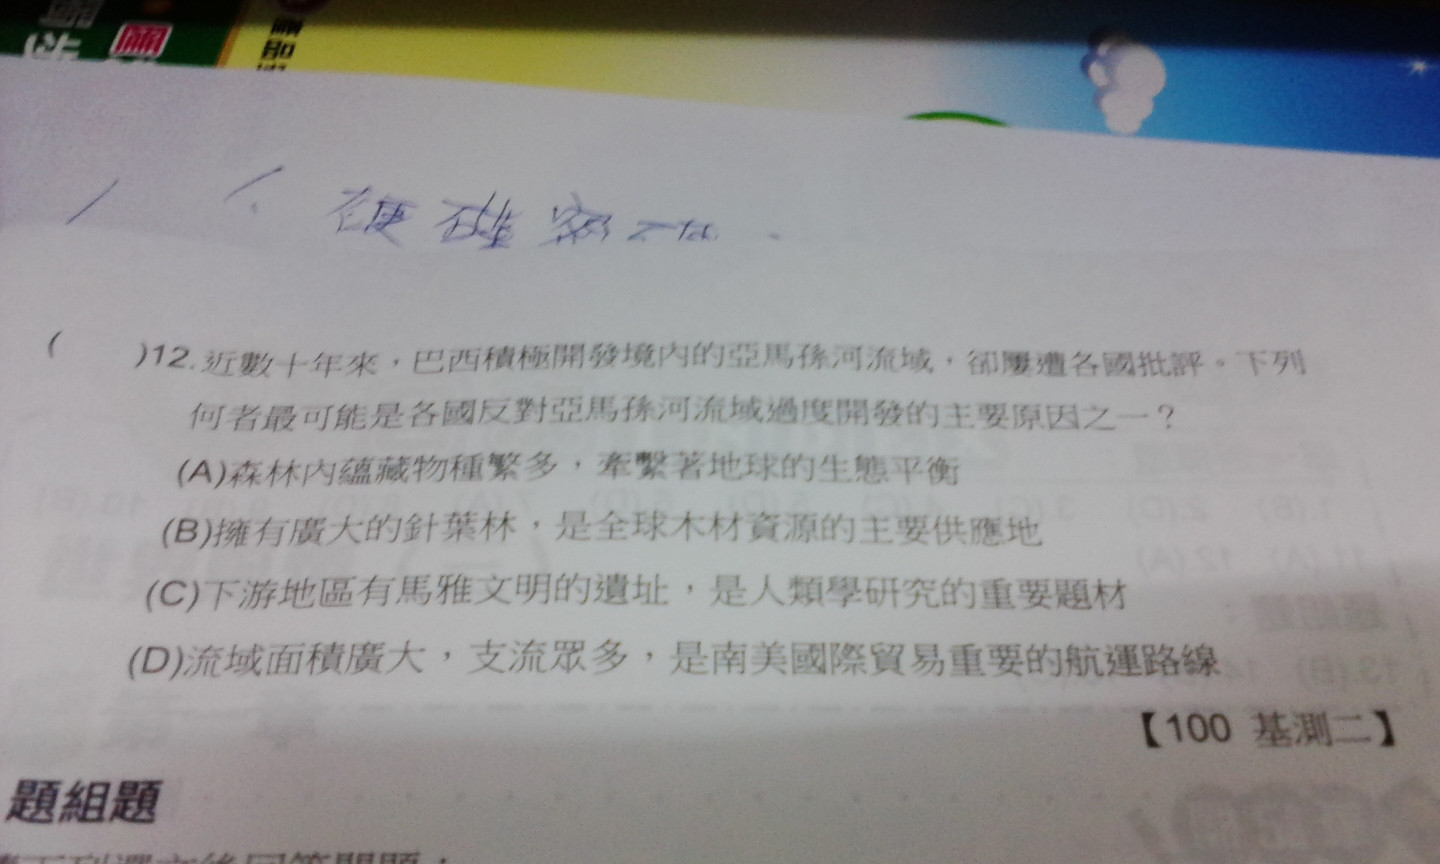 )12.近數十年來,巴西積極開發境內的亞馬孫河流域,卻屢遭各國批評。下列
何者最可能是各國反對亞馬孫河流域過度開發的主要原因之一?
(A)森林內蘊藏物種繁多,牽繫著地球的生態平衡
(B)擁有廣大的針葉林,是全球木材資源的主要供應地
(C)下游地區有馬雅文明的遺址,是人類學研究的重要題材
(D)流域面積廣大,支流眾多,是南美國際貿易重要的航運路線
【100 基測二】
題組題